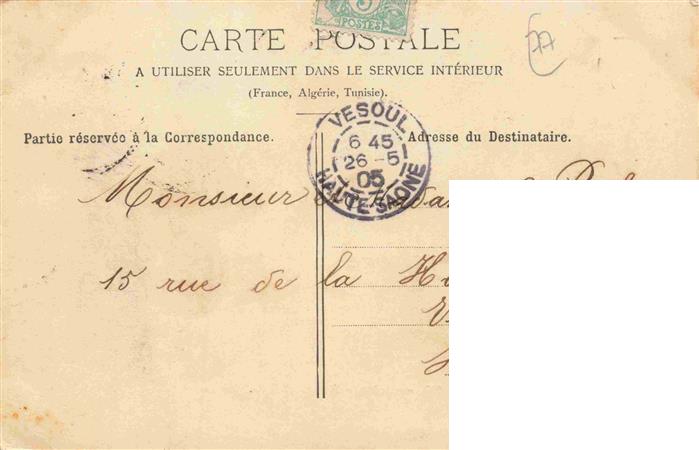 5
POSTES
77
CARTE POSTALE
A UTILISER SEULEMENT DANS LE SERVICE INTÉRIEUR
(France, Algérie, Tunisie).
VESOUL
6 45
26 -5
05
HAUTE-SAONE
Partie réservée à la Correspondance.
Adresse du Destinataire.
Monsieur
15 rue de la